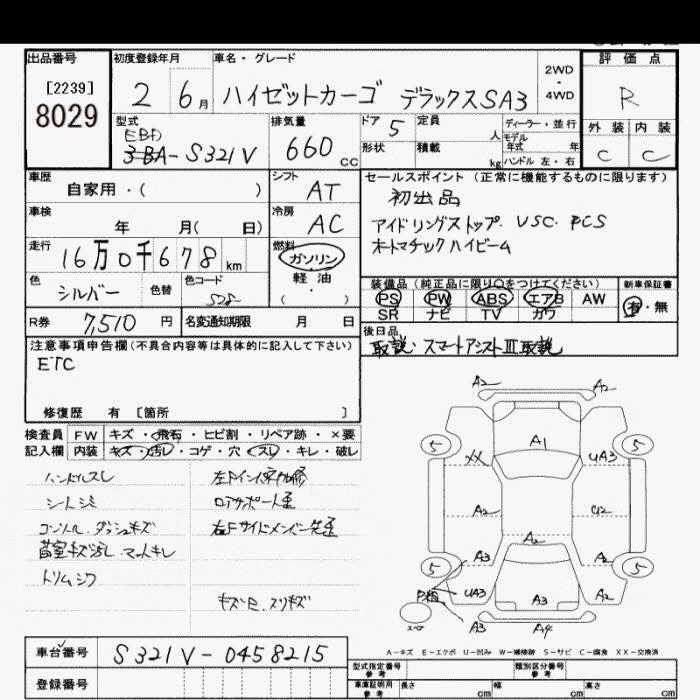 出品番号 初度登録年月 車名・グレード 評価点
[2239]
8029
2 6月 ハイゼットカーゴ デラックスSAⅢ
2WD
・
4WD
R
型式 排気量 ドア 5 定員 人 ディーラー・並行 外装 内装
EBD
3BA-S321V 660 CC
モデル年式 年
形状 積載 kg ハンドル 左・右
C C
車歴 シフト セールスポイント (正常に機能するものに限ります)
自家用・( ) AT 初出品
車検 冷房
年 月( 日) AC アイドリングストップ. VSC. PCS
オートマチックハイビーム
走行 燃料
16万0千678km ガソリン
軽油
・
( )
色 色替 色コード
シルバー
装備品 (純正品に限り○をつけてください) 新車保証書
PS PW ABS エアB AW 有・無
SR ナビ TV カワ
R券 7,510円 名変通知期限 月 日
後日品
取説・スマートアシストⅢ取説
注意事項申告欄(不具合内容等は具体的に記入して下さい)
ETC
修復歴 有 [箇所 ]
検査員 FW キズ・飛石・ヒビ割・リペア跡・×要
記入欄 内装 キズ・汚レ・コゲ・穴・スレ・キレ・破レ
ハンドルスレ
シートシミ
荷室キズ汚レ マットキレ
トリムシワ
A2 A2
5 A1 5
XX UA3
A2 U2
A2
A3 A2
5 5
UA3 A3 A2
スペア
A3 A4
A-キズ E-エクボ U-凹み W-補修跡 S-サビ C-腐食 XX-交換済
車台番号 S321V-0458215
登録番号
型式指定番号 参考 類別区分番号 参考
車庫証明用 参考 長さ cm 幅 cm 高さ cm